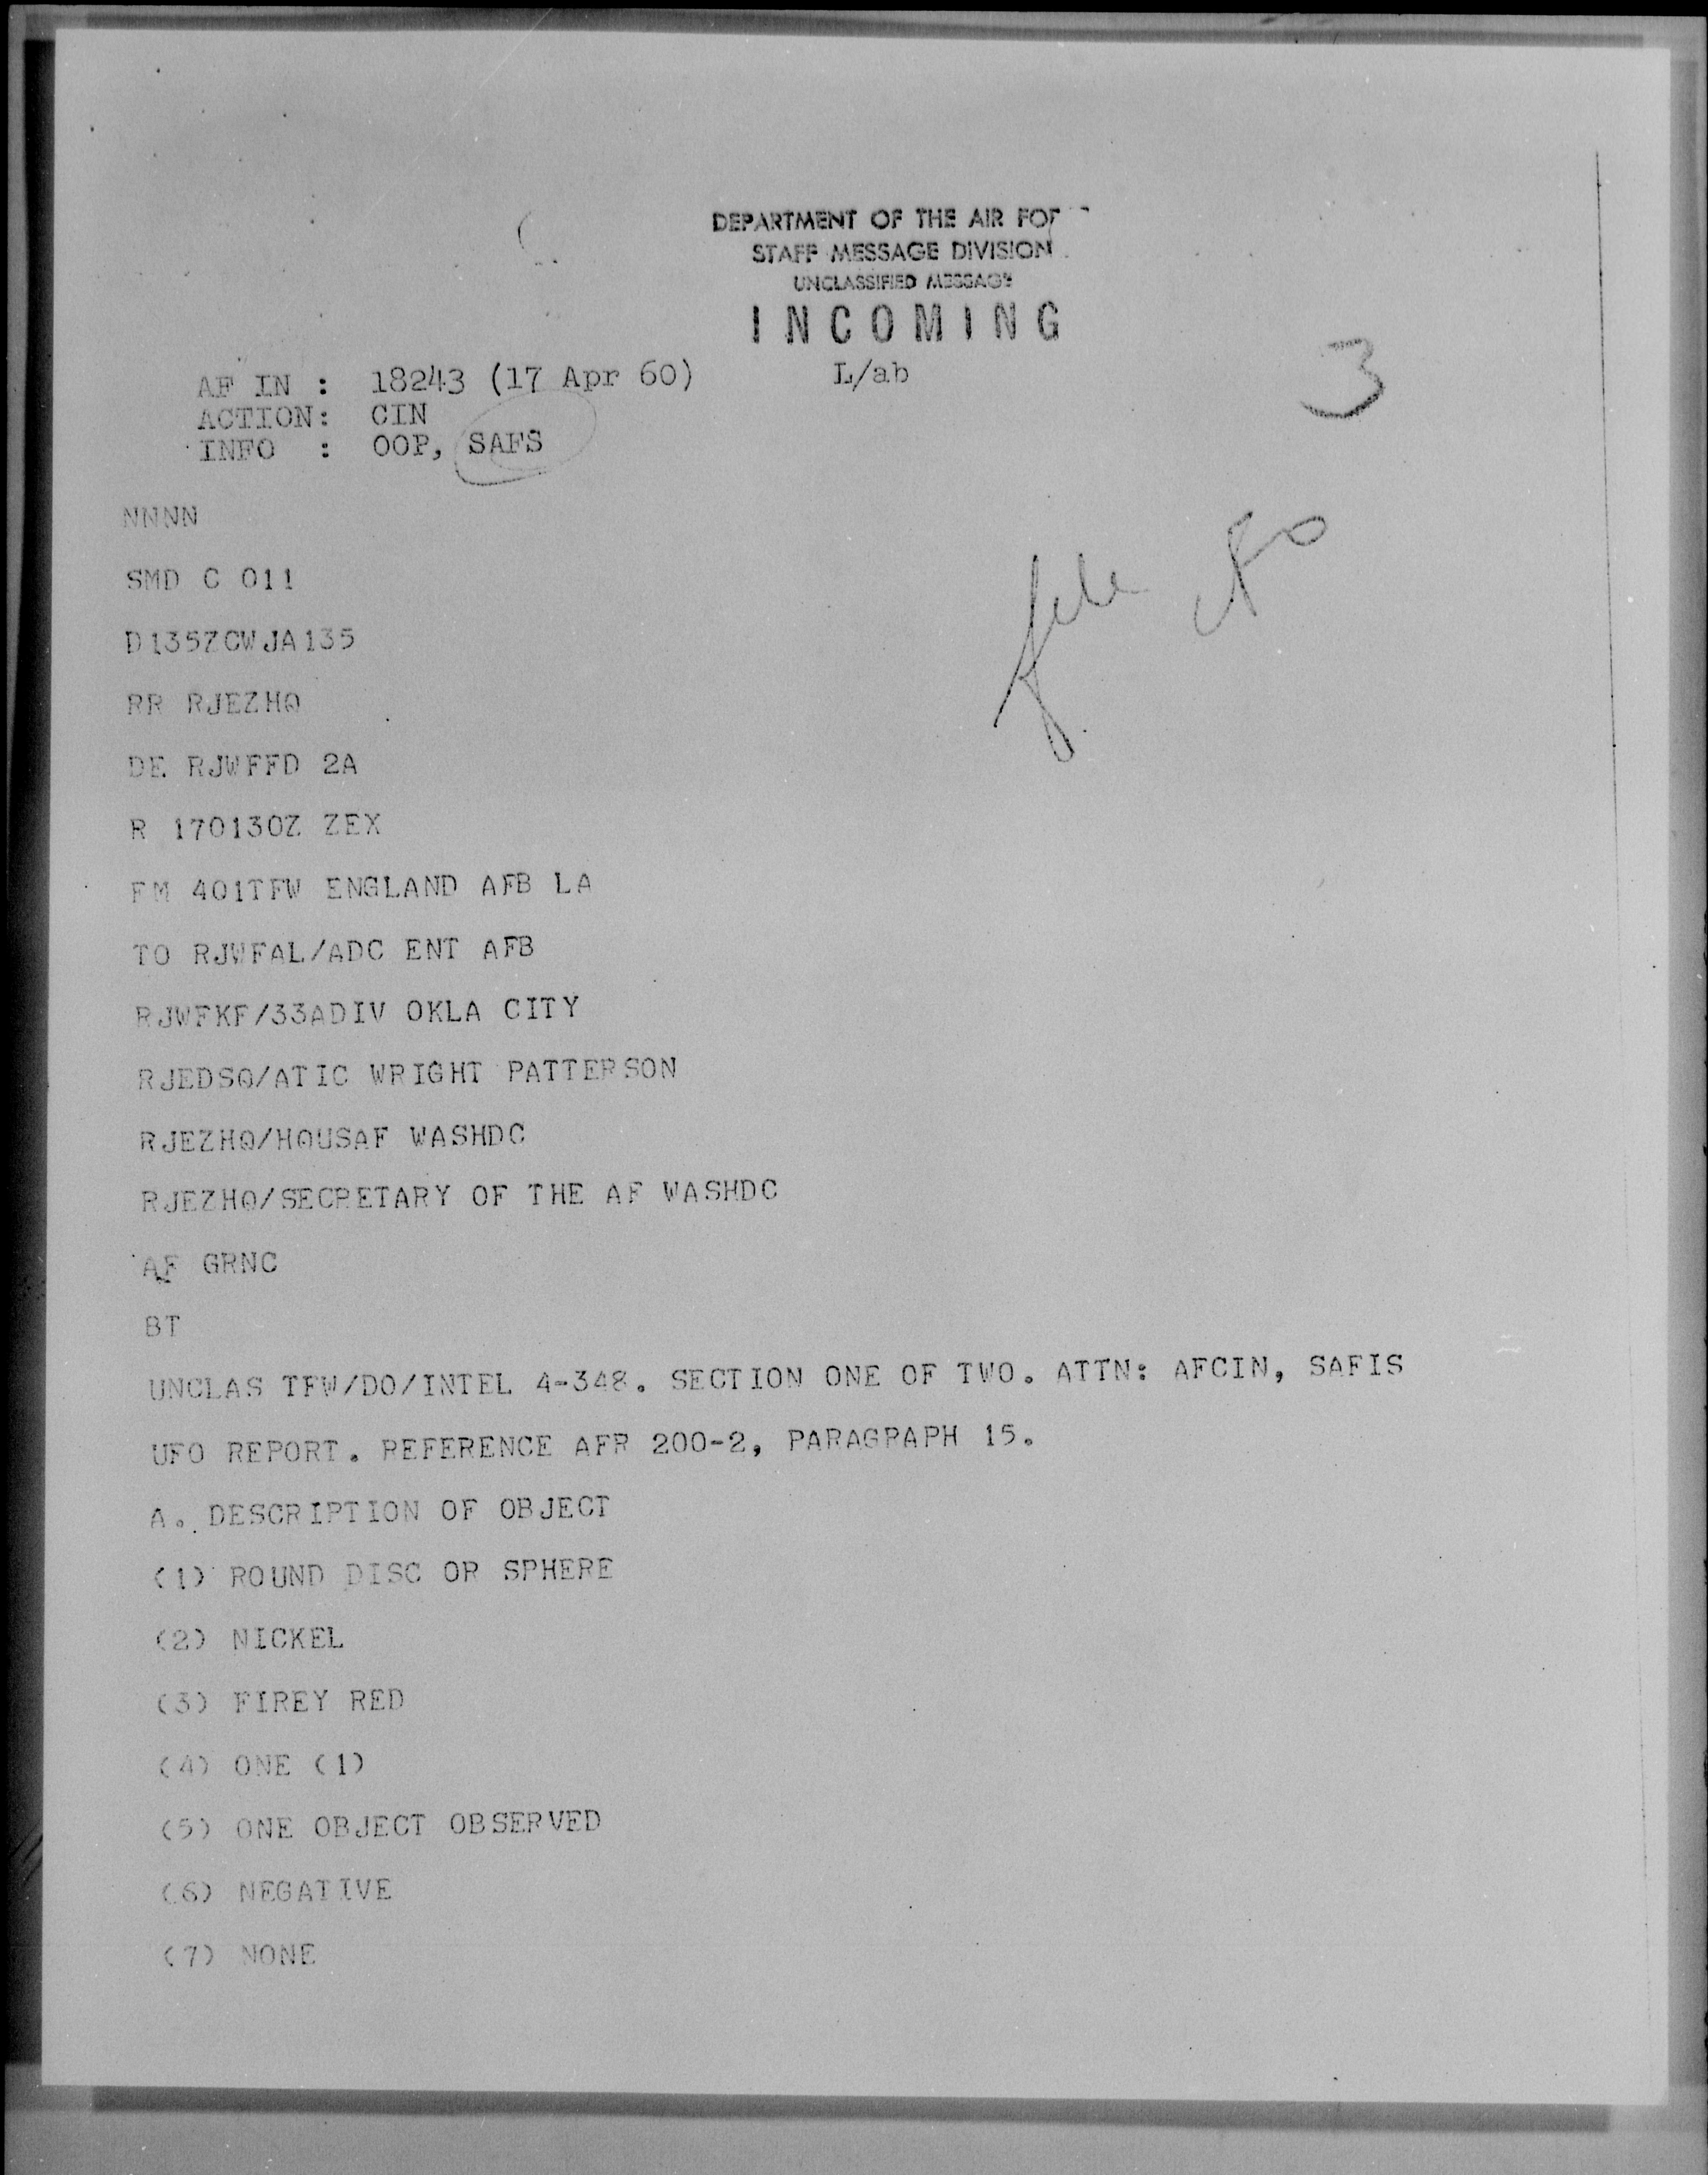 DEPARTMENT OF THE AIR FOR
STAFF MESSAGE DIVISION
UNCLASSIFIED MESSAGE
INCOMING
AF IN : 18243 (17 Apr 60) L/ab
3
ACTION: CIN
INFO : OOP, SAFS
NNNN
file
SMD C 011
D135ZCWJA135
RR RJEZHQ
DE RJWFFD 2A
R 170130Z ZEX
FM 401TFW ENGLAND AFB LA
TO RJWFAL/ADC ENT AFB
RJWFKF/33ADIV OKLA CITY
RJEDSQ/ATIC WRIGHT PATTERSON
RJEZHQ/HQUSAF WASHDC
RJEZHQ/SECRETARY OF THE AF WASHDC
AF GRNC
BT
UNCLAS TFW/DO/INTEL 4-348. SECTION ONE OF TWO. ATTN: AFCIN, SAFIS
UFO REPORT. REFERENCE AFR 200-2, PARAGRAPH 15.
A. DESCRIPTION OF OBJECT
(1) ROUND DISC OR SPHERE
(2) NICKEL
(3) FIREY RED
(4) ONE (1)
(5) ONE OBJECT OBSERVED
(6) NEGATIVE
(7) NONE